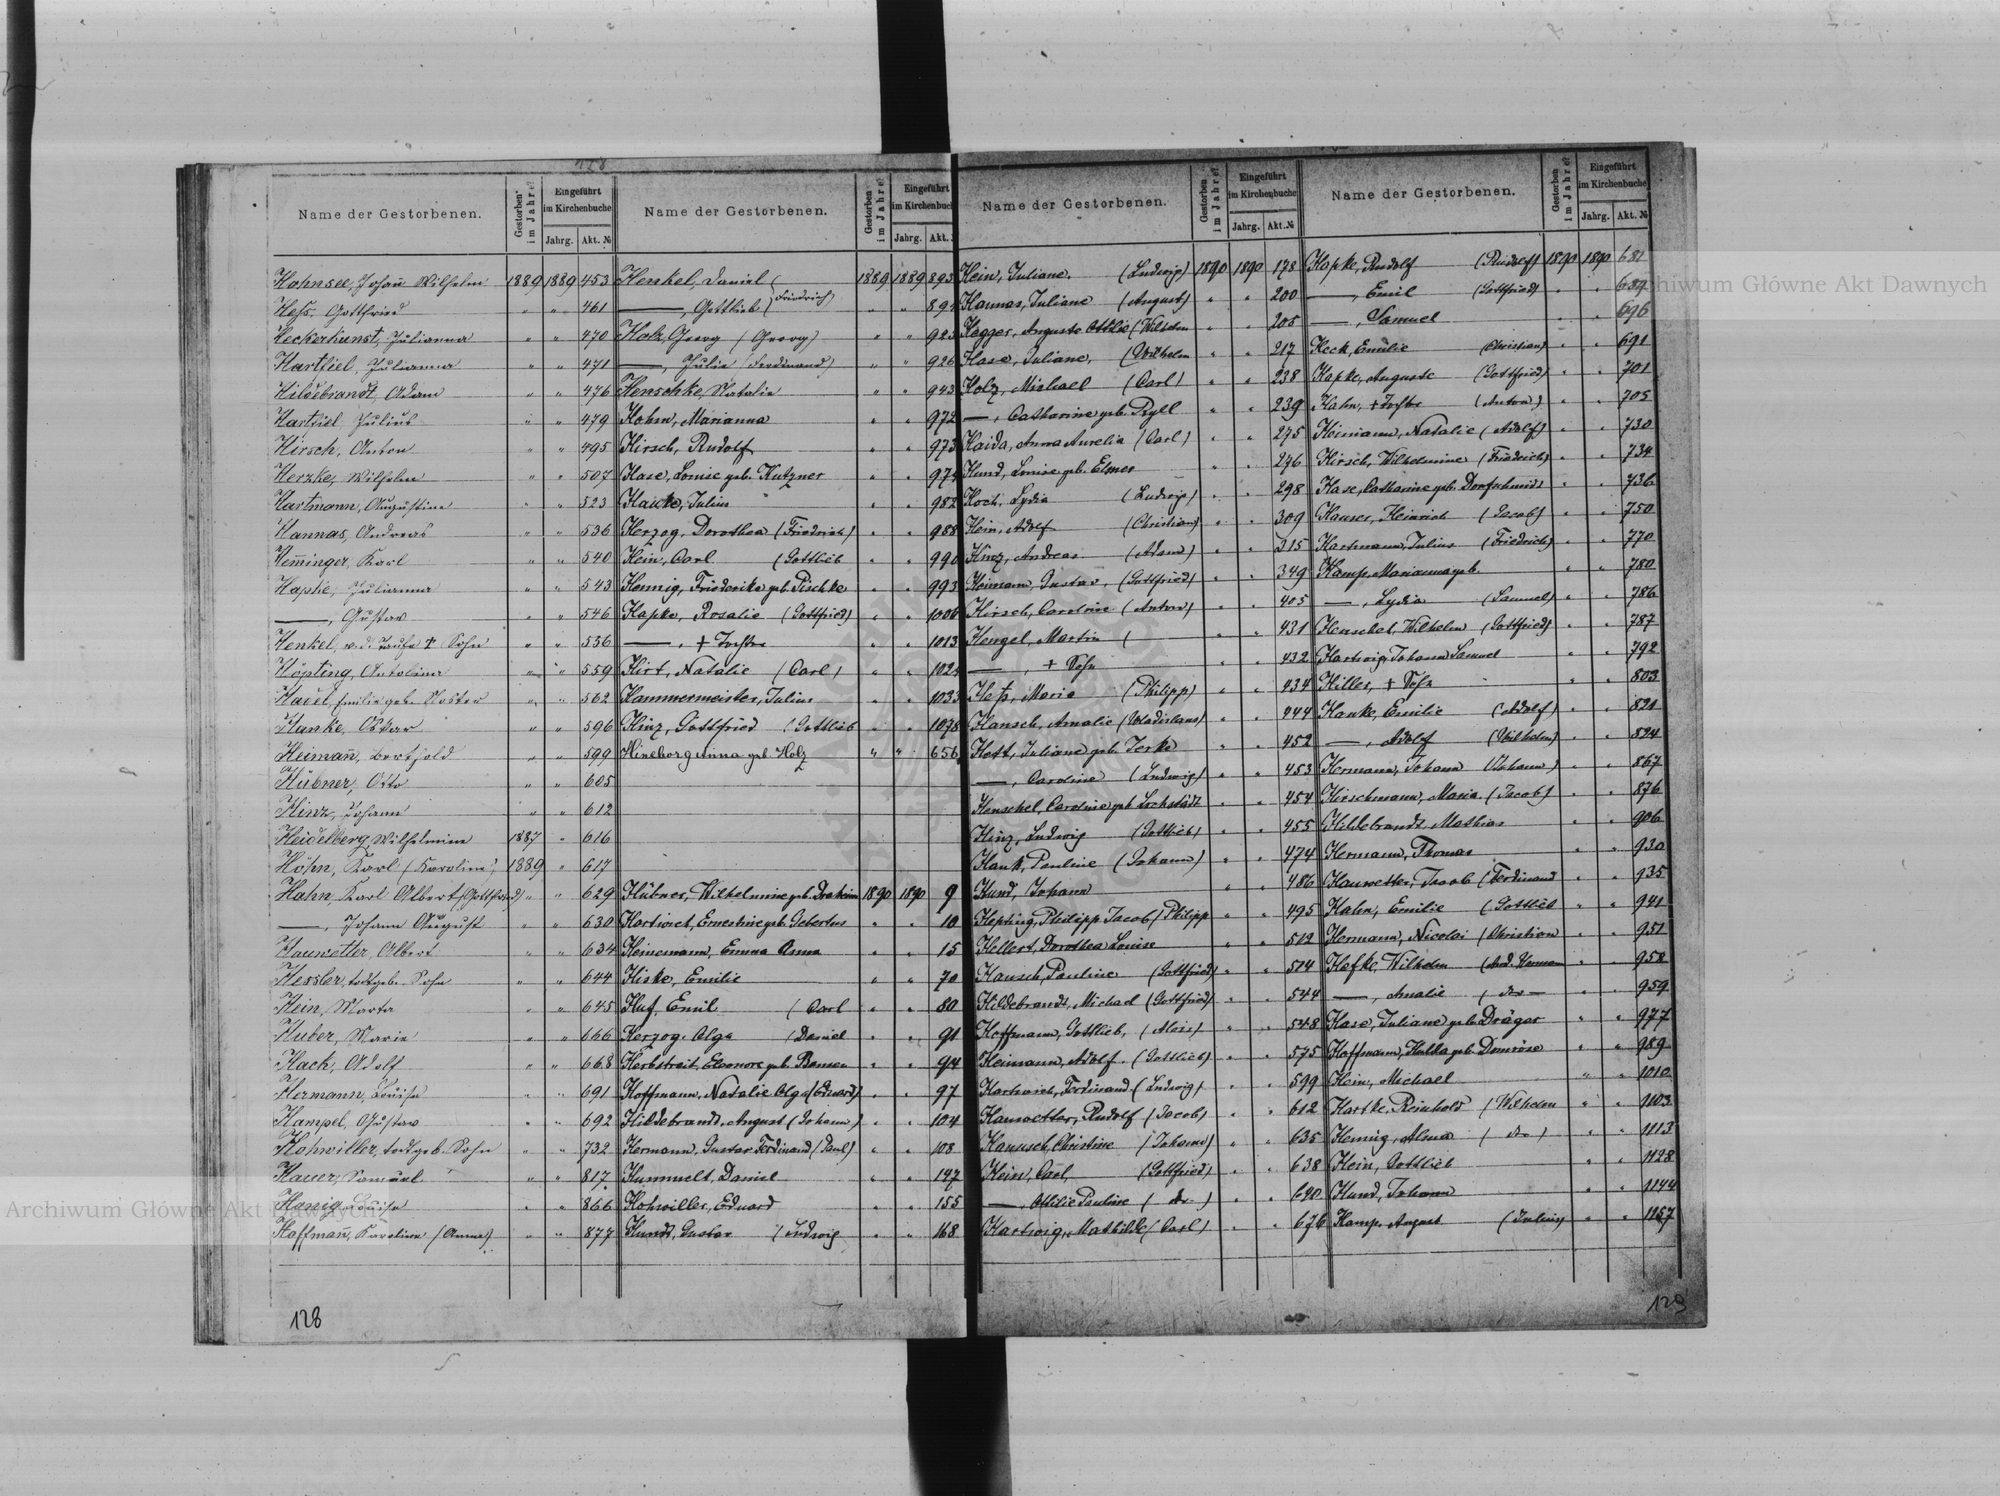 128
Name der Gestorbenen.
Gestorben im Jahre
Eingeführt im Kirchenbuche
Jahrg. Akt. №
Hohnsee, Johann Wilhelm 1889 1889 453
Heß, Gottfried " " 461
Heckerkunst, Julianna " " 470
Hartliel, Julianna " " 471
Hildebrandt, Adam " " 476
Hartliel Julius " " 479
Hirsch, Anton " " 495
Herzke, Wilhelm " " 507
Hartmann, Augustine " " 523
Hannas, Andreas " " 536
Hem̅inger, Karl " " 540
Julianna " " 543
—, Gustav " " 546
Henkel, v. d. Taufe † Sohn " " 536
Höpting, " " 559
Emilie geb. " " 562
Hanke, Oskar " " 596
Heiman̅, Bertold " " 599
Hübner, Otto " " 605
Hinz, Johann " " 612
Heidelberg Wilhelmine 1887 " 616
Höhn, Karl (Karoline) 1889 " 617
Hahn, Karl Albert (Gottfried) " " 629
—, Johann August " " 630
Hauwetter, Albert " " 634
Hessler, todtgeb. Sohn " " 644
Hein, Marta " " 645
Huber, Marie " " 666
Hack, Adolf " " 668
Hermann, Louise " " 691
Hampel, Gustav " " 692
Hohwiller, todtgeb. Sohn " " 732
Hauer, Samuel " " 817
Honig, Louise " " 866
Hoffman̅, Karoline (Anna) " " 877
128
Name der Gestorbenen.
Gestorben im Jahre
Eingeführt im Kirchenbuch
Jahrg. Akt.
Henkel, Daniel ( 1889 1889 893
—, Gottlieb (Friedrich) " " 894
Holz, Georg (Georg) " " 923
—, Julie (Ferdinand) " " 926
Henschke, Natalie " " 943
Hohm, Marianna " " 972
Hirsch, Rudolf " " 973
Hase, Louise geb. Kutzner " " 974
Haucke, Julius " " 982
Herzog, Dorothea (Friedrich) " " 988
Hein, Carl (Gottlieb " " 990
Hennig, Friederike geb. Pischke " " 993
Hapke, Rosalie (Gottfried) " " 1006
—, † Tochter " " 1013
Hirt, Natalie (Carl) " " 102
Hammermeister, Julius " " 1033
Hinz, Gottfried (Gottlieb " " 1078
Hineborg Anna geb. Holz " " 656
Hübner, Wilhelmine geb. 1890 1890 9
Ernestine geb. " " 10
Heinemann, Emma Anna " " 15
Hiske, Emilie " " 70
Huf, Emil (Carl " " 80
Herzog, Olga (Daniel " " 91
Herbstreit, Eleonore geb. " " 94
Hoffmann, Natalie Olga (Eduard) " " 97
Hildebrandt, August (Johann) " " 104
Hermann, Gustav Ferdinand (Paul) " " 108
Hummelt, Daniel " " 147
Hohwiller, Eduard " " 155
Hundt, Gustav (Ludwig " " 168
Name der Gestorbenen.
Gestorben im Jahre
Eingeführt im Kirchenbuche
Jahrg. Akt. №
Hein, Juliane (Ludwig) 1890 1890 178
Hannas, Juliane (August) " " 200
Hegger, Auguste Ottilie (Wilhelm " " 205
Hase, Juliane, (Wilhelm " " 217
Holz, Michael (Carl) " " 238
—, Catharine geb. Ryll " " 239
Haida, Anna Aurelia (Carl) " " 275
Hund, Louise geb. Elmer " " 276
Hoch, Lydia (Ludwig) " " 298
Hein, Adolf (Christian) " " 309
Hinz, Andreas (Adam) " " 315
Heimann, Gustav, (Gottfried) " " 349
Hirsch, Caroline (Anton) " " 405
Hengel, Martin ( " " 431
—, † Sohn " " 432
Heß, Maria (Philipp) " " 434
Hansch, Amalie (Wladislaus) " " 444
Hett, Juliane geb. Jerke " " 452
—, Caroline (Ludwig) " " 453
Henschel, Caroline geb. Lochstädt " " 454
Hinz, Ludwig (Gottlieb) " " 455
Hank, Pauline (Johann) " " 474
Hund, Johann " " 486
Hepting, Philipp Jacob (Philipp " " 495
Hellert, Dorothea Louise " " 512
Hansch, Pauline (Gottfried) " " 514
Hildebrandt, Michael (Gottfried) " " 544
Hoffmann, Gottlieb, (Alois) " " 548
Heimann, Adolf (Gottlieb) " " 575
Hartwich, Ferdinand (Ludwig) " " 599
Hauwetter, Rudolf (Jacob) " " 612
Hanusch, Christine (Johann) " " 635
Hein, Carl, (Gottfried) " " 638
—, Ottilie Pauline (do) " " 690
Hartwig, Mathilde (Carl) " " 676
Name der Gestorbenen.
Gestorben im Jahre
Eingeführt im Kirchenbuche
Jahrg. Akt. №
Hapke, Rudolf (Rudolf) 1890 1890 681
—, Emil (Gottfried) " " 689
—, Samuel " " 696
Heck, Emilie (Christian) " " 691
Hapke, Auguste (Gottfried) " " 701
Hahn, † Tochter (Anton) " " 705
Heimann, Natalie (Adolf) " " 730
Hirsch, Wilhelmine (Friedrich) " " 734
Hase, Catharine geb. Dorfschmidt " " 736
Hauser, Heinrich (Jacob) " " 750
Hartmann, Julius (Friedrich) " " 770
Hamp, Marianna geb. " " 780
—, Lydia (Samuel) " " 786
Henschel, Wilhelm (Gottfried) " " 787
Hartwig, Johann Samuel " " 792
Hiller, † Sohn " " 803
Hanke, Emilie (Adolf) " " 821
—, Adolf (Wilhelm) " " 824
Hermann, Johann (Johann) " " 867
Hirschmann, Maria (Jacob) " " 876
Hildebrandt Mathias " " 906
Hermann, Thomas " " 930
Hauwetter, Jacob (Ferdinand " " 935
Hahn, Emilie (Gottlieb " " 941
Hermann, Nicolai (Christian " " 951
Hefke, Wilhelm (And. Herman " " 958
—, Amalie (do — " " 959
Hase, Juliane geb. Dräger " " 977
Hoffmann, Hulda geb. Domröse " " 989
Hein, Michael " " 1010
Hartke, Reinhold (Wilhelm " " 1103
Hennig, Alma (do) " " 1113
Hein, Gottlieb " " 1128
Hund, Johann " " 1144
Hamp, August (Julius) " " 1157
129
Archiwum Główne Akt Dawnych
Archiwum Główne Akt Dawnych